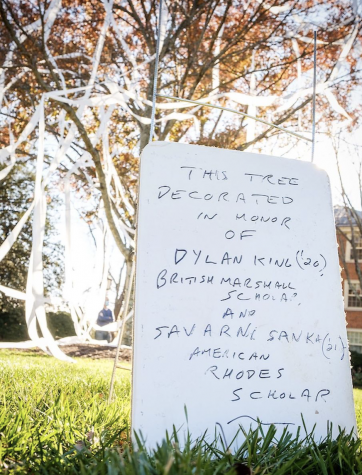 THIS TREE
DECORATED
IN HONOR
OF
DYLAN KING ('20)
BRITISH MARSHALL
SCHOLAR
AND
SAVARNI SANKA ('21)
AMERICAN
RHODES
SCHOLAR